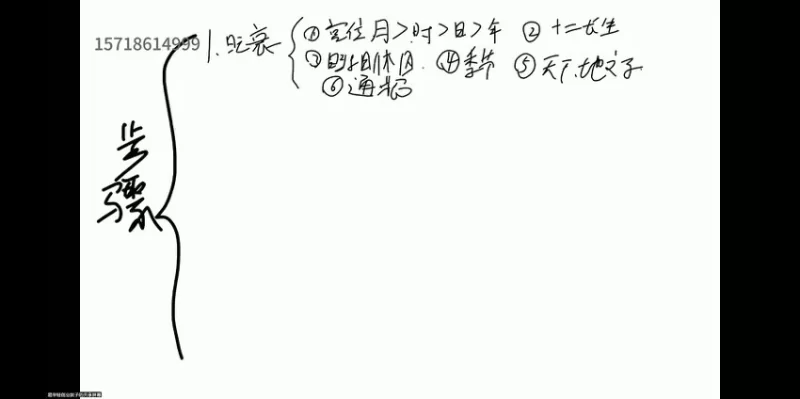 15718614999
步骤
1. 旺衰
① 宫位 月>时>日>年 ② 十二长生
③ 旺相休囚 ④ 季节 ⑤ 天干.地支
⑥ 通根